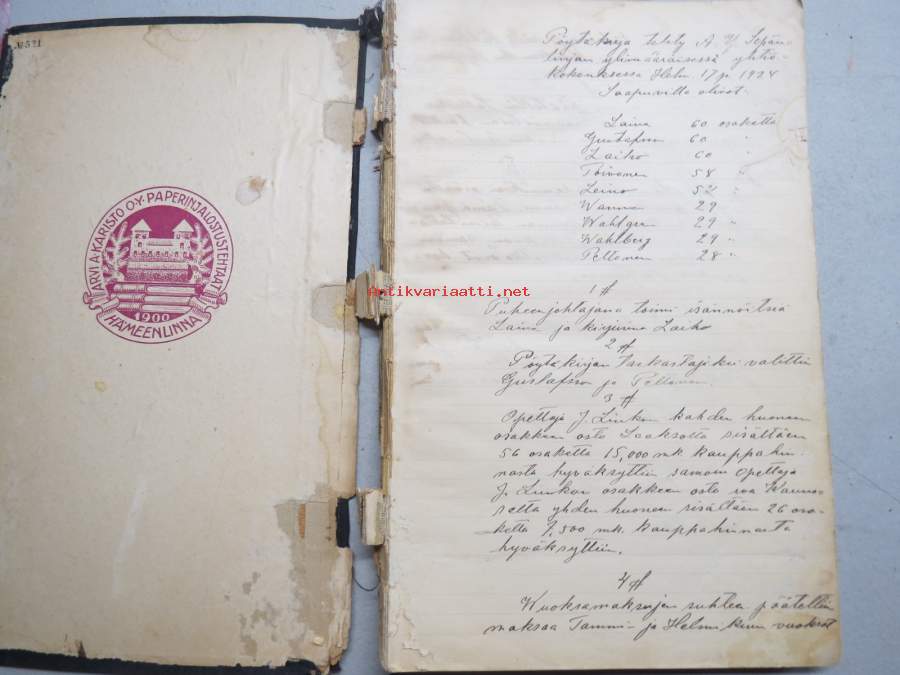 № 521
ARVI A. KARISTO O.Y. PAPERINJALOSTUSTEHTAAT
1900
HÄMEENLINNA
Antikvariaatti.net
Pöytäkirja tehty A Y Sepän-
linjan ylimääräisessä yhtiö-
kokouksessa Helm. 17 p. 1924
Saapuvilla olivat
Laina 60 osaketta
Gustafson 60 "
Laiho 60 "
Toivonen 58 "
Leino 52 "
Wanna 29
Wahlgren 29 "
Wahlberg 29 "
Peltonen 28 "
1 §
Puheenjohtajana toimi isännöitsiä
Laina ja kirjurina Laiho
2 §
Pöytäkirjan tarkastajiksi valittiin
Gustafsson ja Peltonen.
3 §
Opettaja J. Linkon kahden huoneen
osakkeen osto Laaksolta sisältäen
56 osaketta 15,000 mk kauppahin-
nasta hyväksyttiin samoin Opettaja
J. Linkon osakkeen osto
selta yhden huoneen sisältäen 26 osa-
ketta 7,500 mk. kauppahinnasta
hyväksyttiin.
4 §
Wuokramaksujen suhteen päätettiin
maksaa Tammi- ja Helmikuun vuokrat